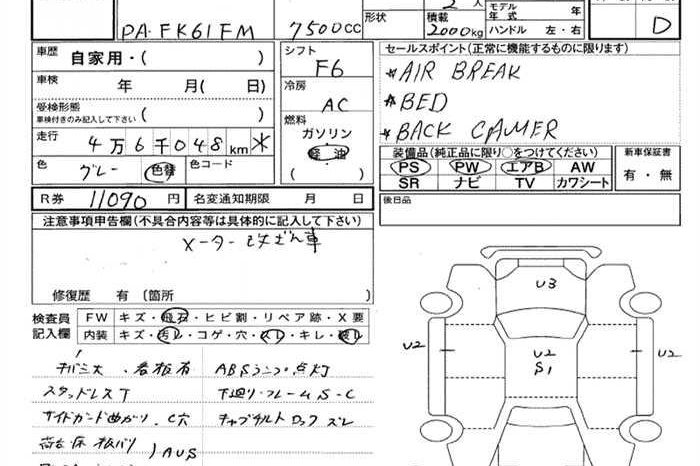 形状
2人
積載
2000kg
モデル年式 年
ハンドル 左・右
D
PA-FK61FM
7500cc
車歴 自家用・( )
シフト F6
セールスポイント(正常に機能するものに限ります)
車検 年 月( 日)
冷房 AC
*AIR BREAK
*BED
*BACK CAMER
受検形態
車検付きのみ記入して下さい
( )
燃料
ガソリン
軽油
( )
走行 4万6千048km *
色 グレー 色替 色コード
装備品(純正品に限り○をつけてください)
PS PW エアB AW
SR ナビ TV カワシート
新車保証書
有・無
R券 11090円 名変通知期限 月 日
後日品
注意事項申告欄(不具合内容等は具体的に記入して下さい)
メーター改ざん車
修復歴 有(箇所
検査員記入欄
FW キズ・飛石・ヒビ割・リペア跡・X要
内装 キズ・汚レ・コゲ・穴・スレ・キレ・破レ
看板有 ABSランプ点灯
スタッドレスT 下廻り・フレームS-C
サイドガード曲がり・C穴 キャブチルトロックズレ
AUS
U3
U2
U2
S1
U2